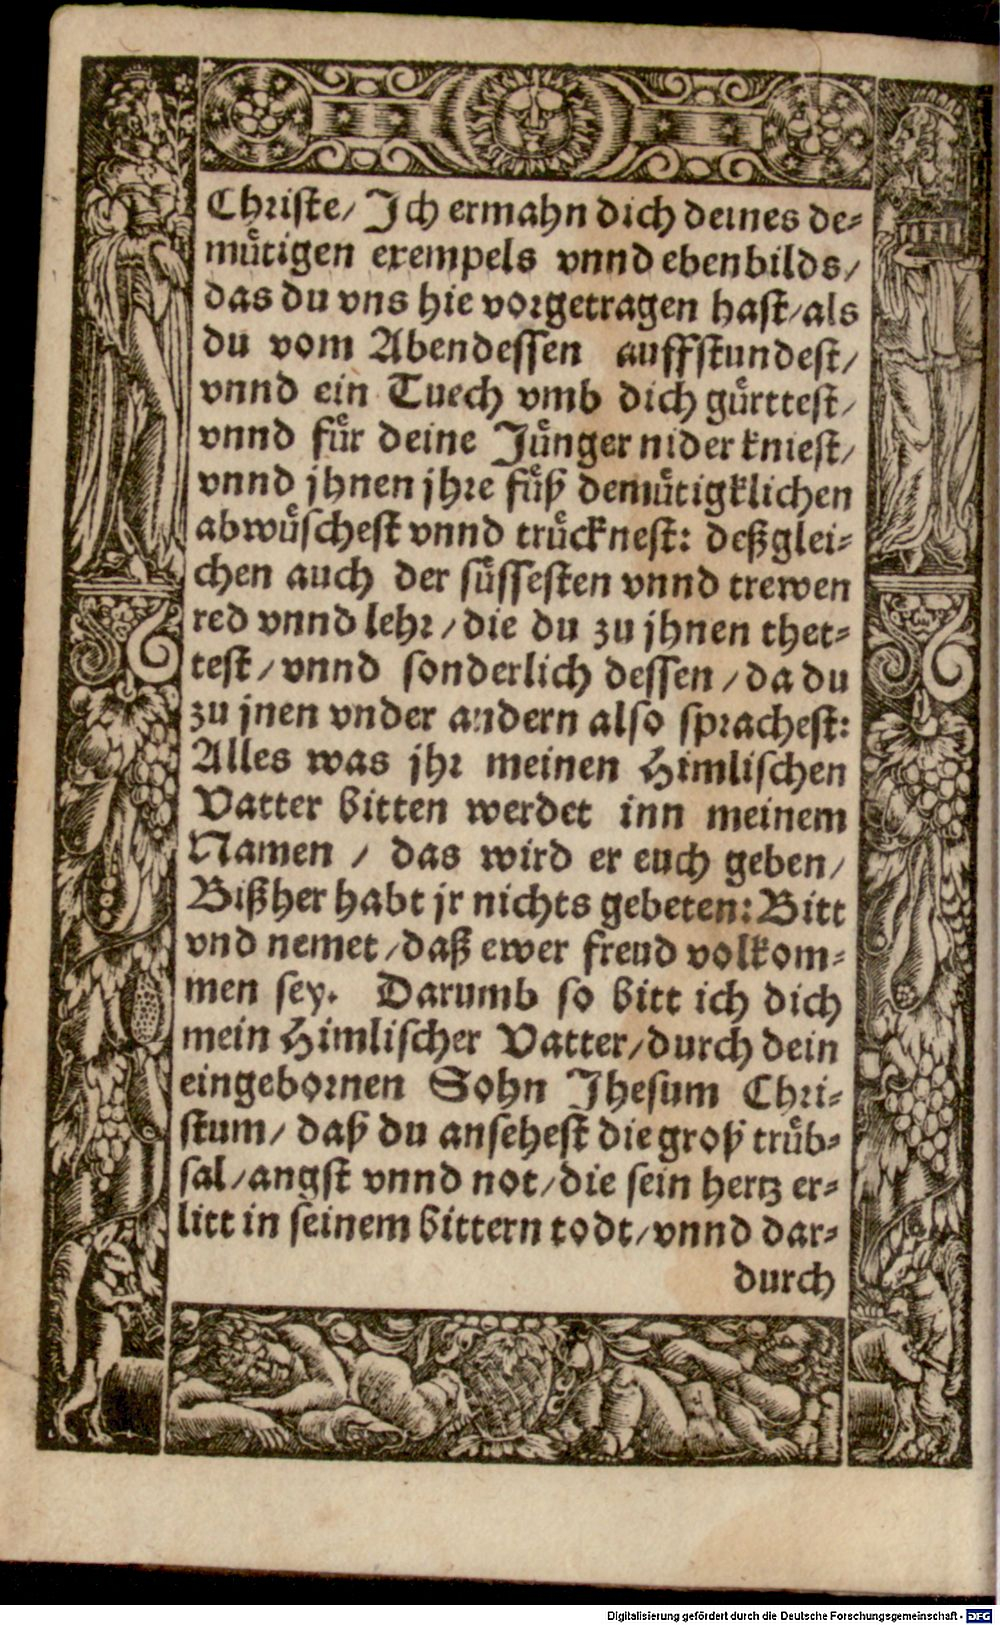 Christe/ Jch ermahn dich deines de⸗
muͤtigen exempels vnnd ebenbilds/
das du vns hie vorgetragen hast/als
du vom Abendessen auffstundest/
vnnd ein Tuech vmb dich guͤrttest/
vnnd fuͤr deine Juͤnger nider kniest/
vnnd jhnen jhre fuͤß demuͤtigklichen
abwuͤschest vnnd truͤcknest: deßglei⸗
chen auch der suͤssesten vnnd trewen
red vnnd lehr/die du zu jhnen thet⸗
test/vnnd sonderlich dessen/da du
zu jnen vnder andern also sprachest:
Alles was jhr meinen Himlischen
Vatter bitten werdet inn meinem
Namen / das wird er euch geben/
Bißher habt jr nichts gebeten: Bitt
vnd nemet/daß ewer freud volkom⸗
men sey. Darumb so bitt ich dich
mein Himlischer Vatter/durch dein
eingebornen Sohn Jhesum Chri⸗
stum/ daß du ansehest die groß truͤb⸗
sal/angst vnnd not/die sein hertz er⸗
litt in seinem bittern todt/vnnd dar⸗
durch
Digitalisierung gefördert durch die Deutsche Forschungsgemeinschaft - DFG